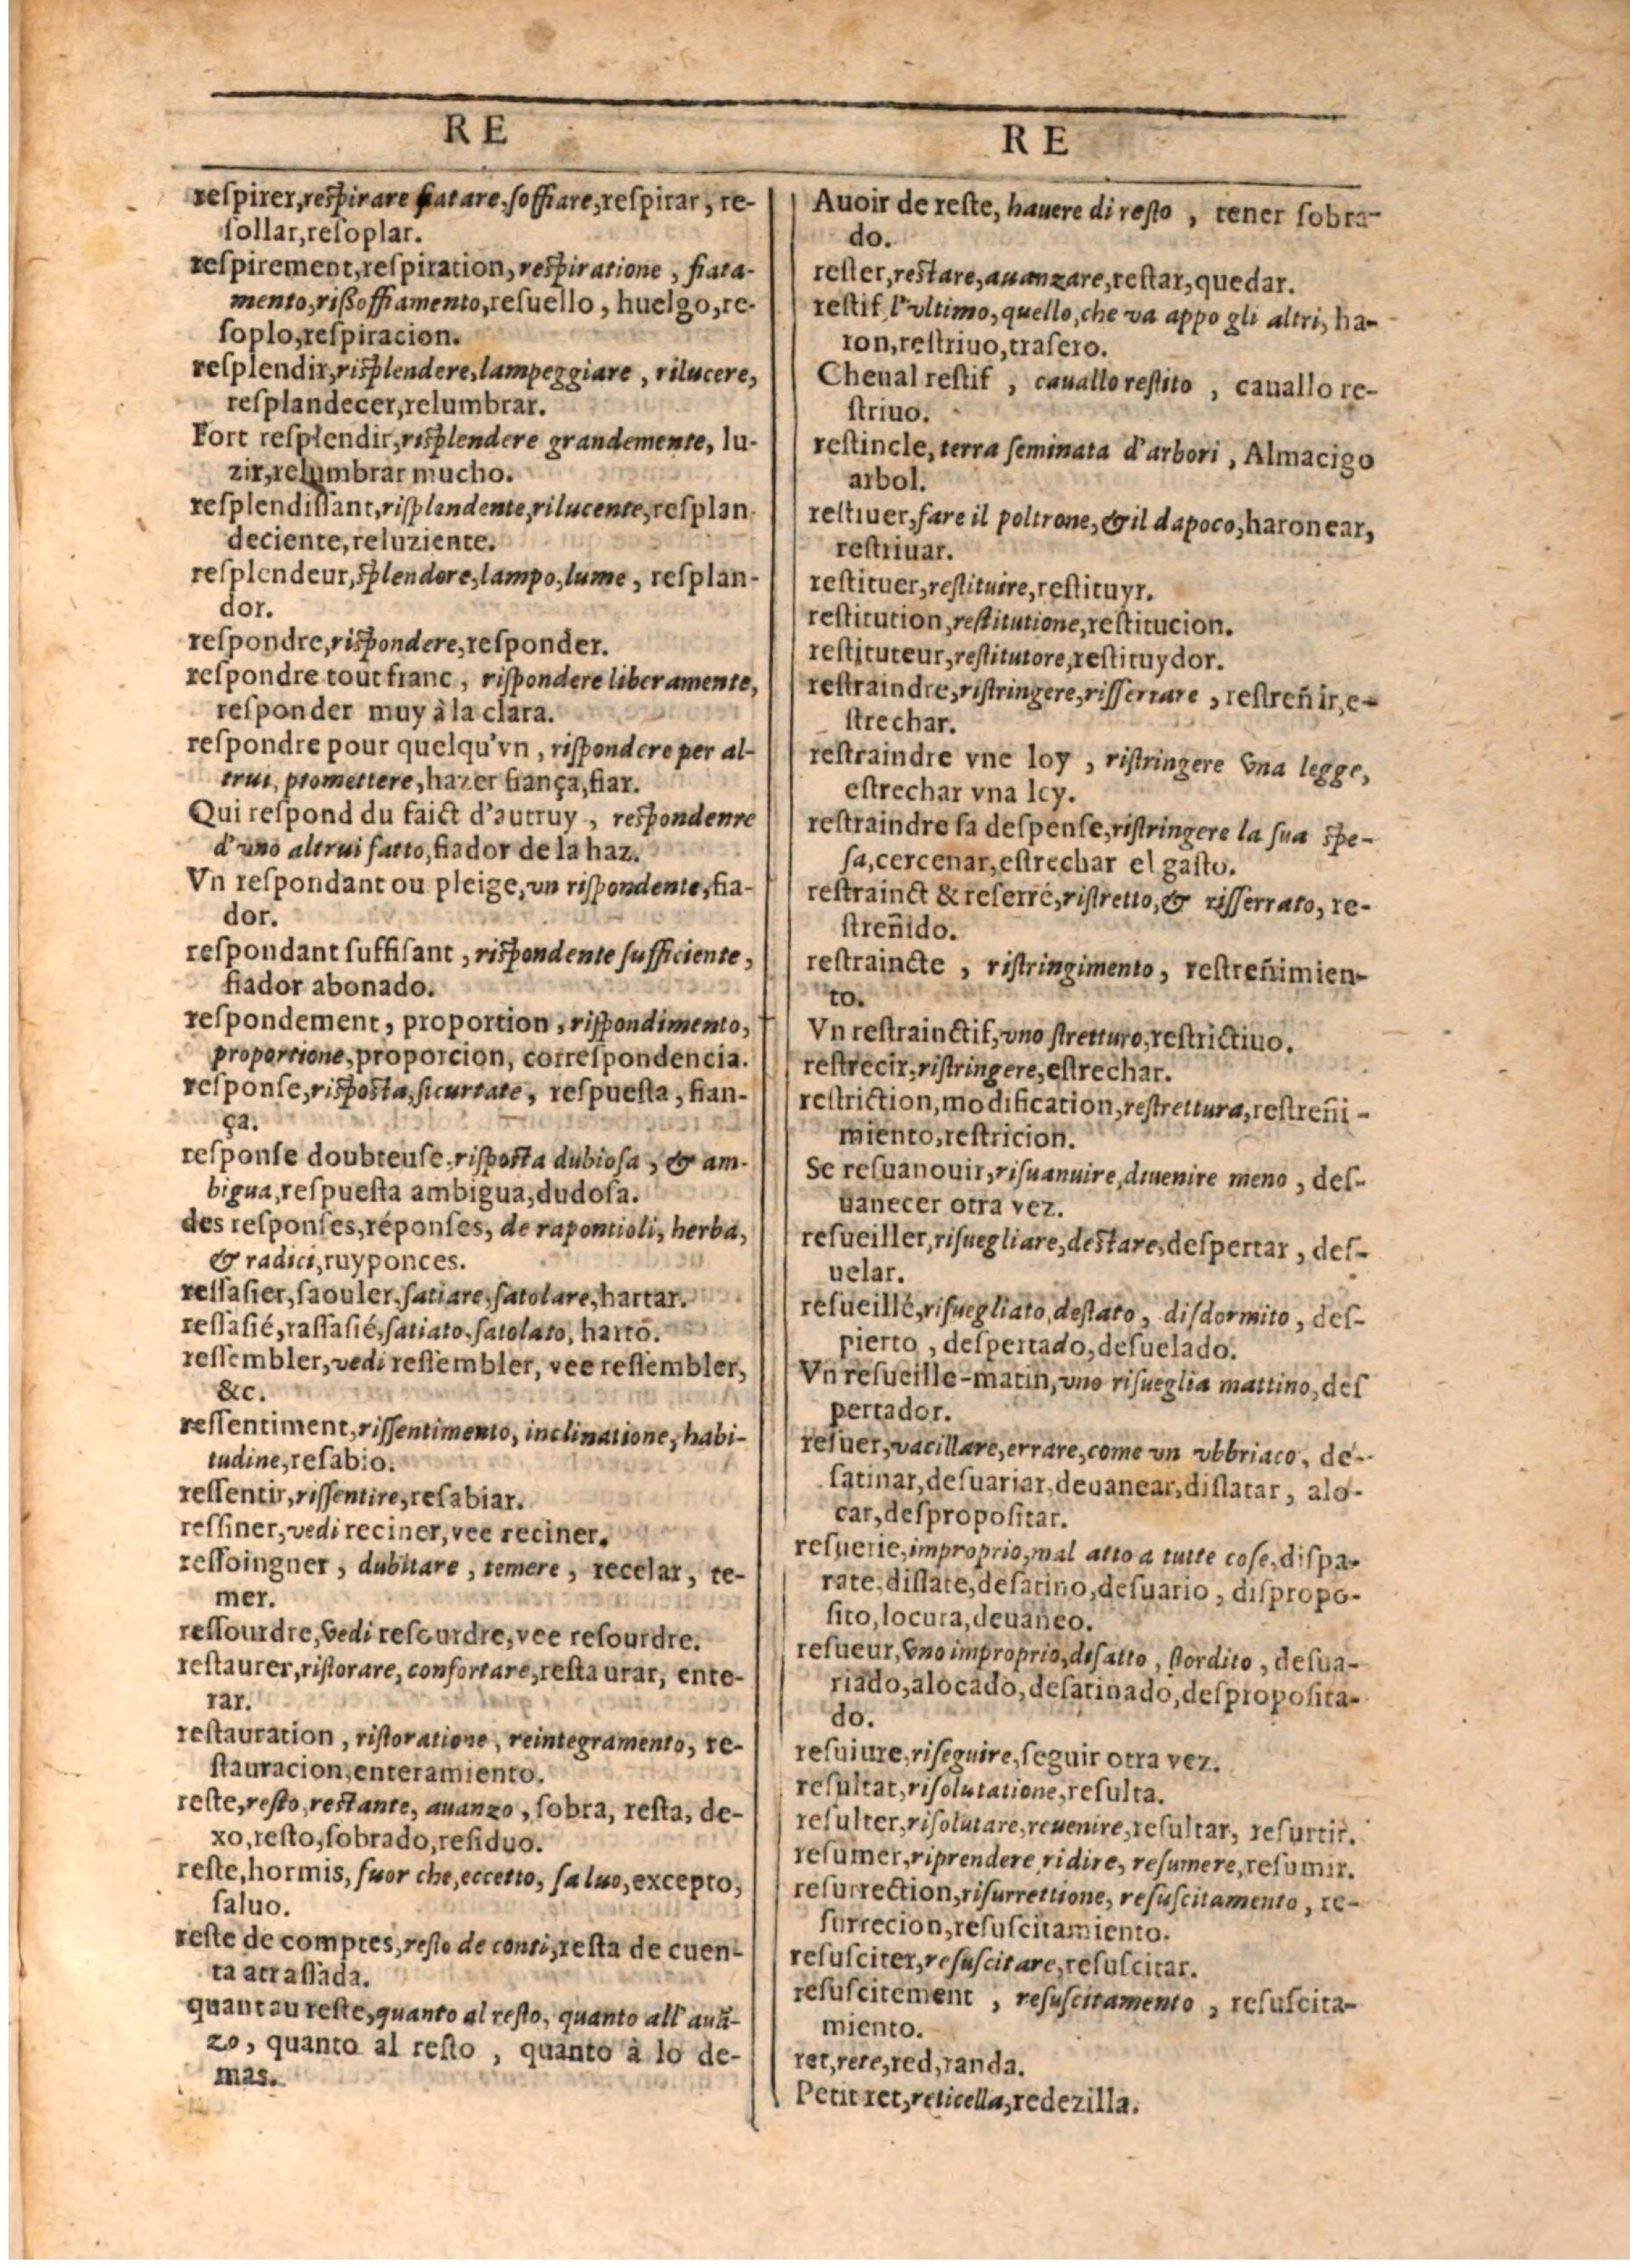 RE
reſpirer,reſpirare fiatare,ſoffiare,reſpirar, re-
ſollar,reſoplar.
reſpirement,reſpiration,reſpiratione, fiata-
mento,riſſoffiamento,reſuello, huelgo,re-
ſoplo,reſpiracion.
reſplendir,riſplendere,lampeggiare, rilucere,
reſplandecer,relumbrar.
Fort reſplendir,riſplendere grandemente, lu-
zir,relumbrar mucho.
reſplendiſſant,riſplendente,rilucente,reſplan-
deciente,reluziente.
reſplendeur,ſplendore,lampo,lume, reſplan-
dor.
reſpondre,riſpondere,reſponder.
reſpondre tout franc, riſpondere liberamente,
reſponder muy à la clara.
reſpondre pour quelqu'vn, riſpondere per al-
trui, promettere,hazer fiança,fiar.
Qui reſpond du faict d'autruy, reſpondenre
d'uno altrui fatto,fiador de la haz.
Vn reſpondant ou pleige,vn riſpondente,fia-
dor.
reſpondant ſuffiſant, riſpondente ſufficiente,
fiador abonado.
reſpondement, proportion,riſpondimento,
proportione,proporcion, correſpondencia.
reſponſe,riſpoſta,ſicurtate, reſpueſta, fian-
ça.
reſponſe doubteuſe,riſpoſta dubioſa, & am-
bigua,reſpueſta ambigua,dudoſa.
des reſponſes,réponſes, de rapontioli, herba,
& radici,ruyponces.
reſſaſier,ſaouler,ſatiare,ſatolare,hartar.
reſſaſié,raſſaſié,ſatiato,ſatolato, harto.
reſſembler,vedi reſſembler, vee reſſembler,
&c.
reſſentiment,riſſentimento, inclinatione,habi-
tudine,reſabio.
reſſentir,riſſentire,reſabiar.
reſſiner,vedi reciner,vee reciner.
reſſoingner, dubitare, temere, recelar, te-
mer.
reſſourdre,vedi reſourdre,vee reſourdre.
reſtaurer,riſtorare,confortare,reſtaurar, ente-
rar.
reſtauration, riſtoratione, reintegramento, re-
ſtauracion,enteramiento.
reſte,reſto,reſtante, auanzo, ſobra, reſta, de-
xo,reſto,ſobrado,reſiduo.
reſte,hormis, fuor che,eccetto, ſaluo,excepto,
ſaluo.
reſte de comptes,reſto de conti,reſta de cuen-
ta atraſſada.
quant au reſte,quanto al reſto, quanto all'auã-
zo, quanto al reſto, quanto à lo de-
mas.
RE
Auoir de reſte, hauere di reſto, tener ſobra-
do.
reſter,reſtare,auanzare,reſtar,quedar.
reſtif,l'vltimo,quello,che va appo gli altri, ha-
ron,reſtriuo,traſero.
Cheual reſtif, cauallo reſtito, cauallo re-
ſtriuo.
reſtincle, terra ſeminata d'arbori, Almacigo
arbol.
reſtiuer,fare il poltrone,& il dapoco,haronear,
reſtriuar.
reſtituer,reſtituire,reſtituyr.
reſtitution,reſtitutione,reſtitucion.
reſtituteur,reſtitutore,reſtituydor.
reſtraindre,riſtringere,riſſerrare, reſtreñir,e-
ſtrechar.
reſtraindre vne loy, riſtringere vna legge,
eſtrechar vna ley.
reſtraindre ſa deſpenſe,riſtringere la ſua ſpe-
ſa,cercenar,eſtrechar el gaſto.
reſtrainct & reſerré,riſtretto,& riſſerrato, re-
ſtreñido.
reſtraincte, riſtringimento, reſtreñimien-
to.
Vn reſtrainctif,vno ſtretturo,reſtrictiuo.
reſtrecir,riſtringere,eſtrechar.
reſtriction,modification,reſtrettura,reſtreñi-
miento,reſtricion.
Se reſuanouir,riſuanuire,diuenire meno, deſ-
uanecer otra vez.
reſueiller,riſuegliare,deſtare,deſpertar, deſ-
uelar.
reſueillé,riſuegliato,deſtato, diſdormito, deſ-
pierto, deſpertado,deſuelado.
Vn reſueille-matin,vno riſueglia mattino,deſ
pertador.
reſuer,vacillare,errare,come vn vbbriaco, de-
ſatinar,deſuariar,deuanear,diſlatar, alo-
car,deſpropoſitar.
reſuerie,improprio,mal atto a tutte coſe,diſpa-
rate,diſlate,deſatino,deſuario, diſpropo-
ſito,locura,deuaneo.
reſueur,vno improprio,diſatto, ſtordito, deſua-
riado,alocado,deſatinado,deſpropoſita-
do.
reſuiure,riſeguire,ſeguir otra vez.
reſultat,riſolutatione,reſulta.
reſulter,riſolutare,reuenire,reſultar, reſurtir.
reſumer,riprendere,ridire, reſumere,reſumir.
reſurrection,riſurrettione, reſuſcitamento, re-
ſurrecion,reſuſcitamiento.
reſuſciter,reſuſcitare,reſuſcitar.
reſuſcitement, reſuſcitamento, reſuſcita-
miento.
ret,rete,red,randa.
Petit ret,reticella,redezilla.